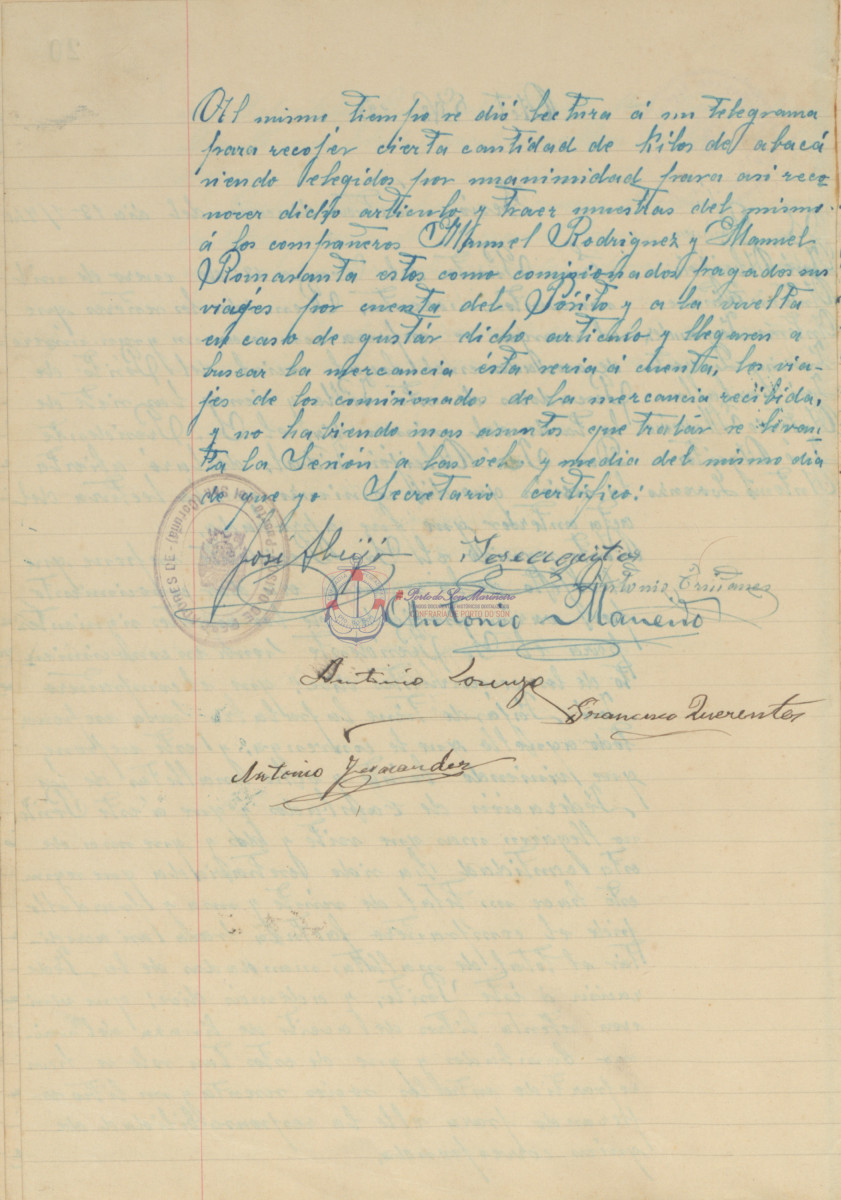 Al mismo tiempo se dió lectura á un telegrama
para recojér cierta cantidad de kilos de abacá
siendo elegidos por unanimidad para asi reco-
nocer dicho articulo y traer muestras del mismo
á los compañeros Manuel Rodriguez y Manuel
Romasanta estos como comisionados pagados sus
viages por cuenta del Pósito y a la vuelta
en caso de gustár dicho articulo y llegaren a
buscar la mercancia ésta seria á cuenta, los via-
jes de los comisionados de la mercancia recibida,
y no habiendo mas asuntos que tratár se levan-
ta la Sesión a las och y media del mismo dia
de que yo Secretario certifico:
José Abeijó
Antonio
Porto do Son Marineiro
CONFRARÍA DE PORTO DO SON
Antonio
Antonio Lorenzo
Francisco Querentes
Antonio Fernandez
PÓSITO DE PESCADORES DE